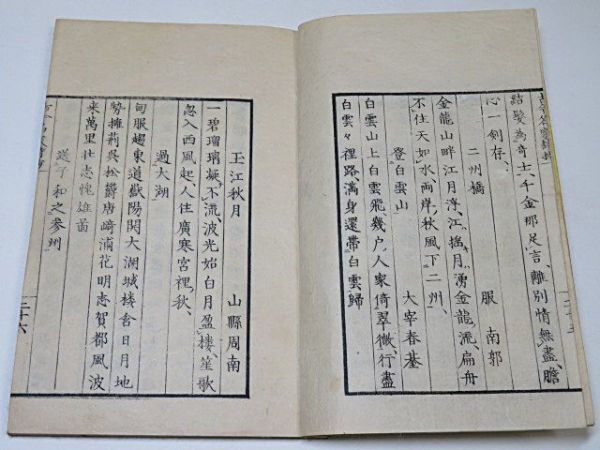 結髮為奇士、千金那足言、離別情無盡、膽
心一剣存、
二州橋 服南郭
金龍山畔江月浮、江搖月湧金龍流扁舟
不住天如水、両岸秋風下二州、
登白雲山 太宰春台
白雲山上白雲飛幾戸人家倚翠微行盡
白雲々裡路、滿身還帯白雲歸
二十五
玉江秋月 山縣周南
一碧瑠璃凝不流波光始白月盈樓、笙歌
忽入西風起人住廣寒宮裡秋、
過太湖
甸服趨東道嶽陽関大湖城楼含日月地
勢擁荊呉松欝唐崎浦花明志賀都風波
来萬里壮志愧雄圖
送子和之參州
二十六